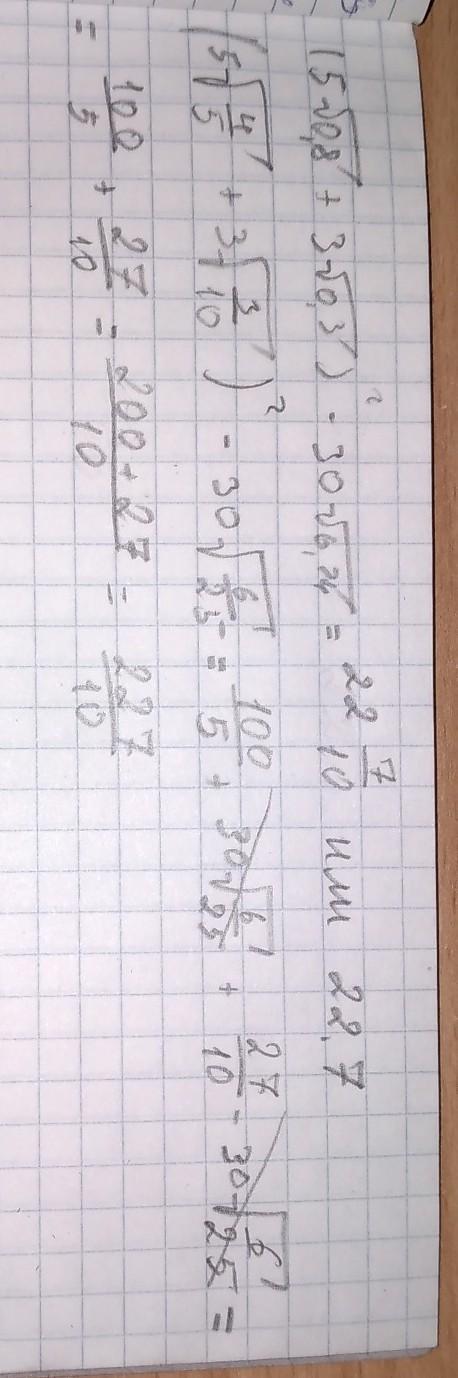 (5√0,8 + 3√0,3)² - 30√0,24 = 22 7/10 или 22,7
(5√4/5 + 3√3/10)² - 30√6/25 = 100/5 + 30√6/25 + 27/10 - 30√6/25 =
= 100/5 + 27/10 = 200+27/10 = 227/10